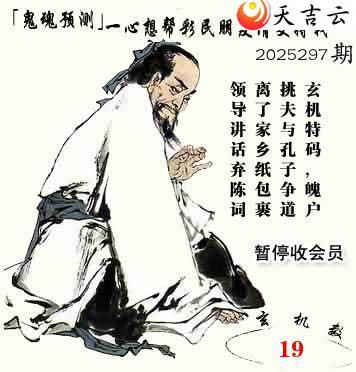 天吉云
「鬼魂预测」一心想帮彩民朋
2025297期
玄机特码，魄户
挑夫与孔子争道
离了家乡纸包裹
领导讲话弃陈词
暂停收会员
玄机数
19